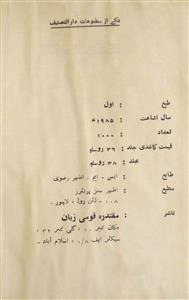 یکے از مطبوعات دارالتصنیف
طبع : اول
سال اشاعت : ۱۹۸۵ء
تعداد : ۱۰۰۰
قیمت کاغذی جلد : ۳۶ روپے
مجلد : ۳۸ روپے
طابع : ایس ـ ایم ـ اظہر رضوی
مطبع : اظہر سنز پرنٹرز
لٹن روڈ ، لاہور ـ
ناشر : مقتدرہ قومی زبان
مکان نمبر گلی نمبر ۳۲
سیکٹر ایف ۸/۰ ، اسلام آباد ـ